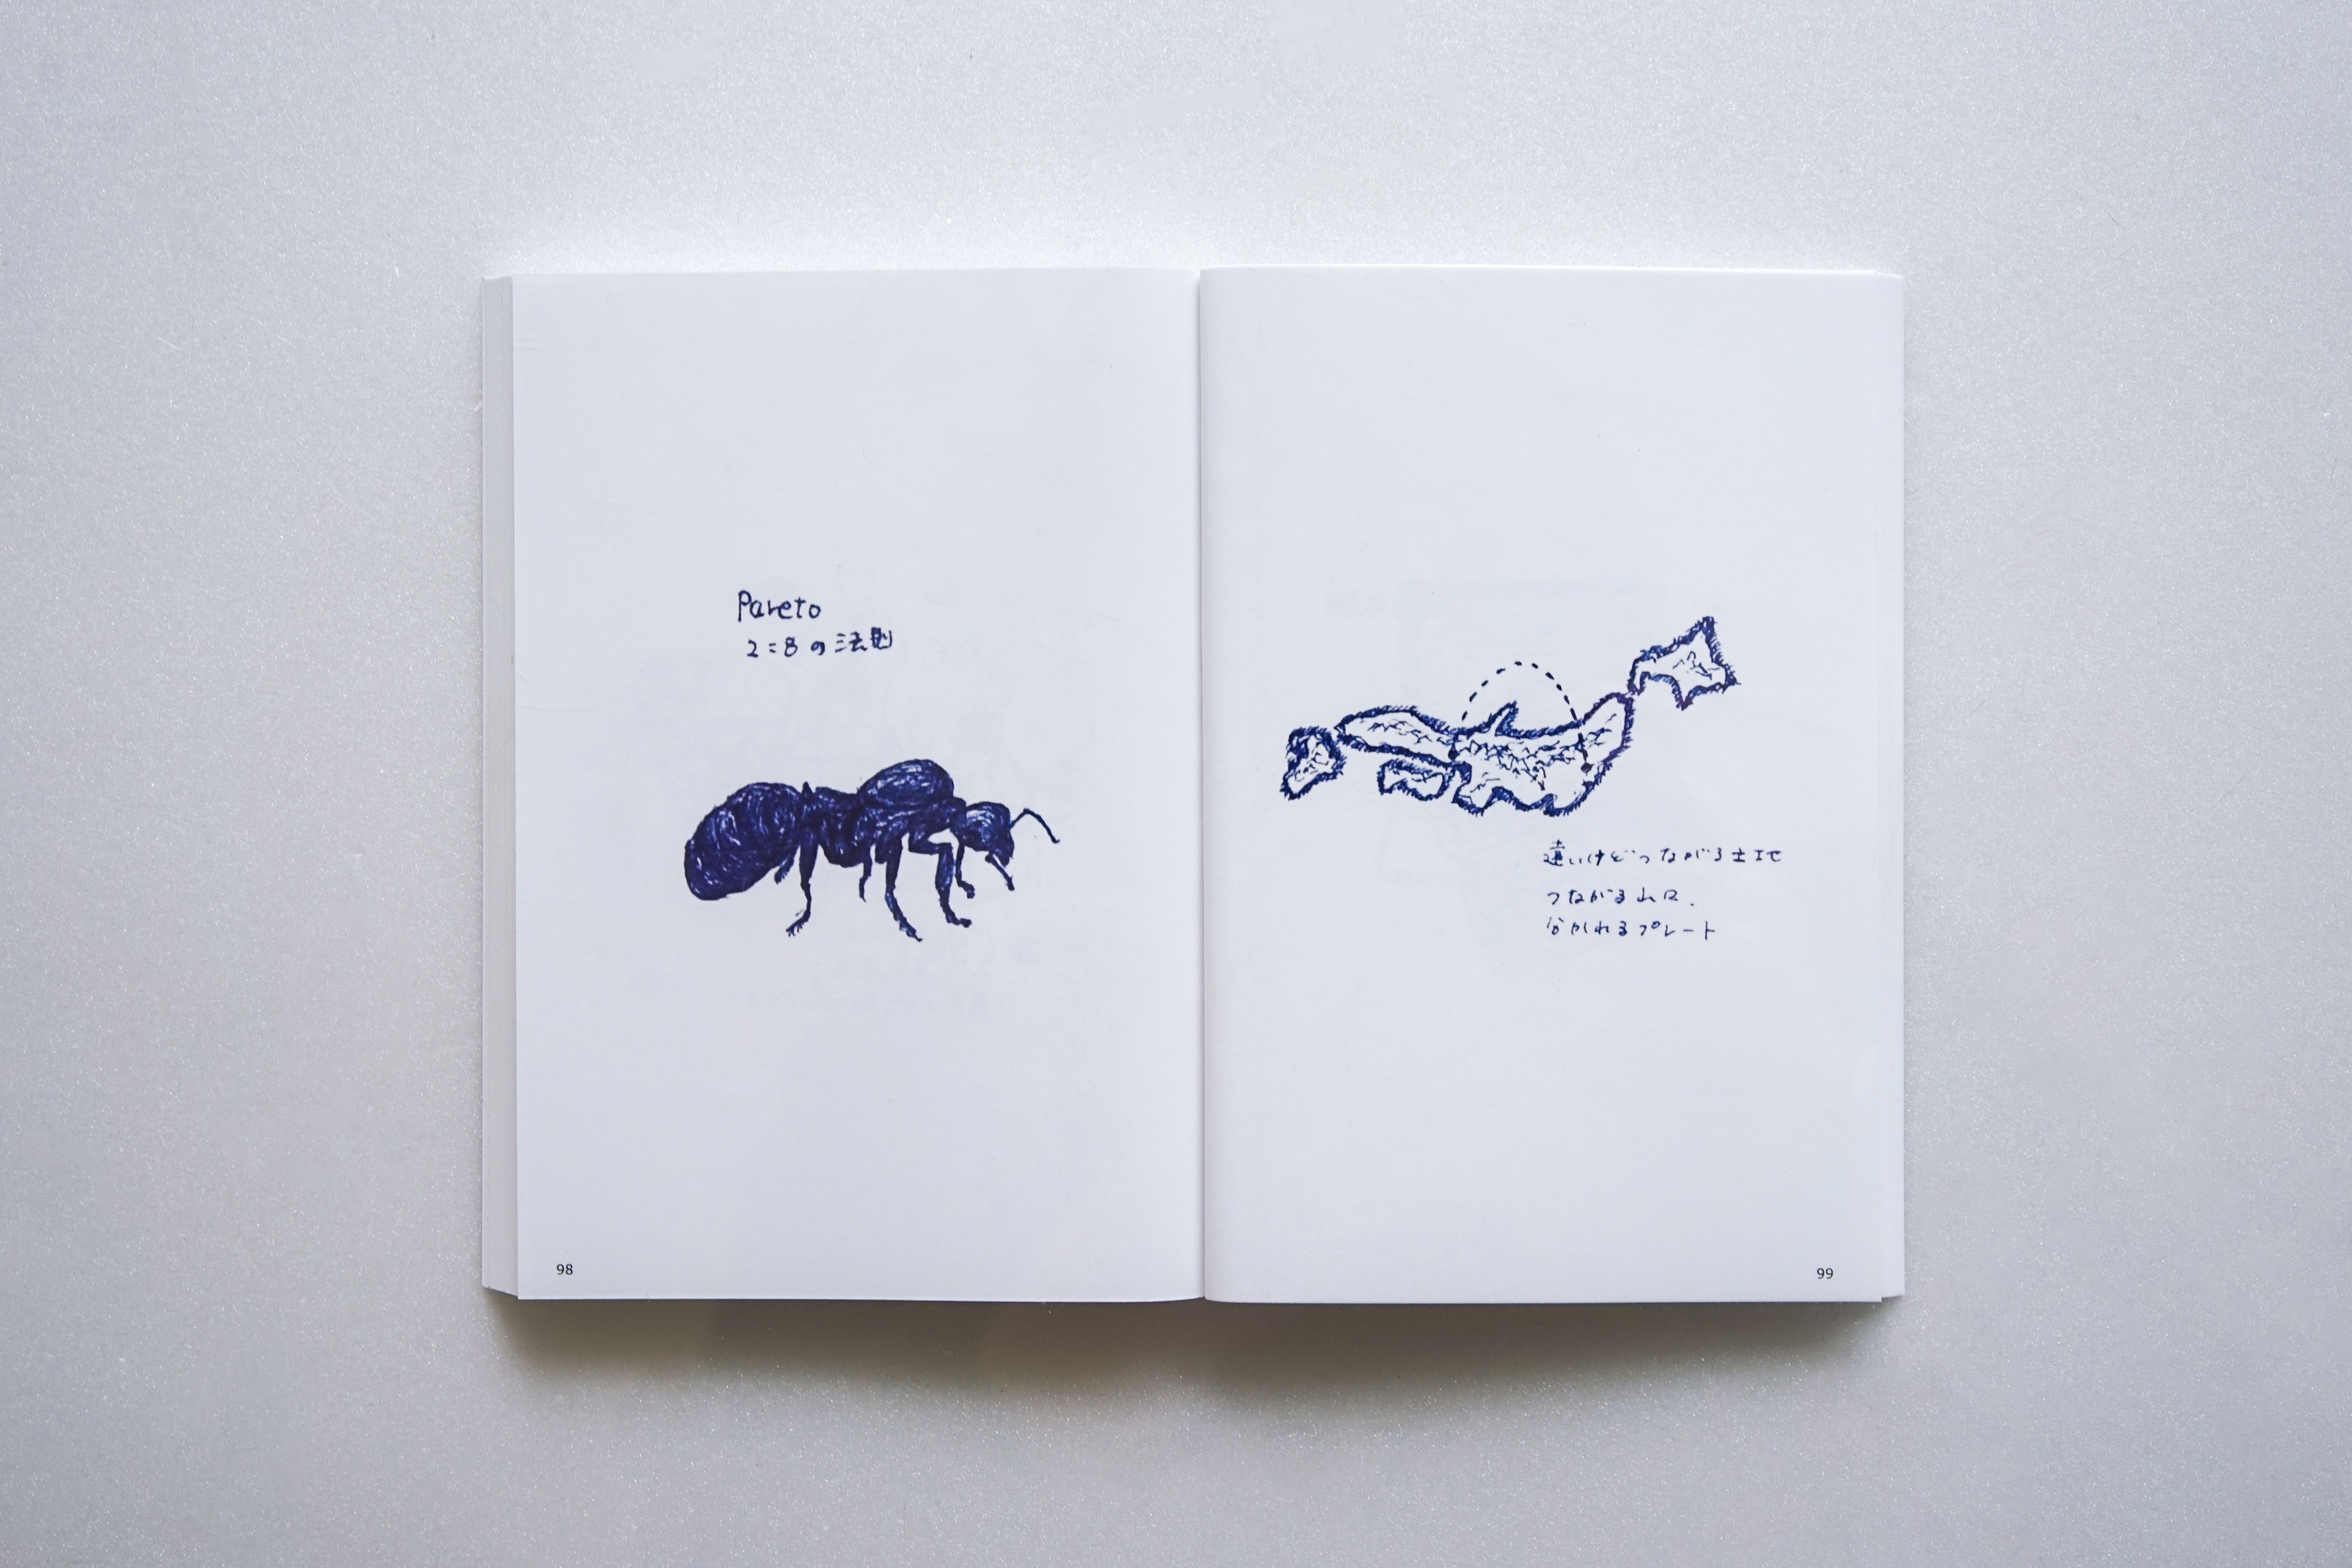 Pareto
2:8の法則
98
遠いけどつながる土地
つながる山口、
分かれるプレート
99